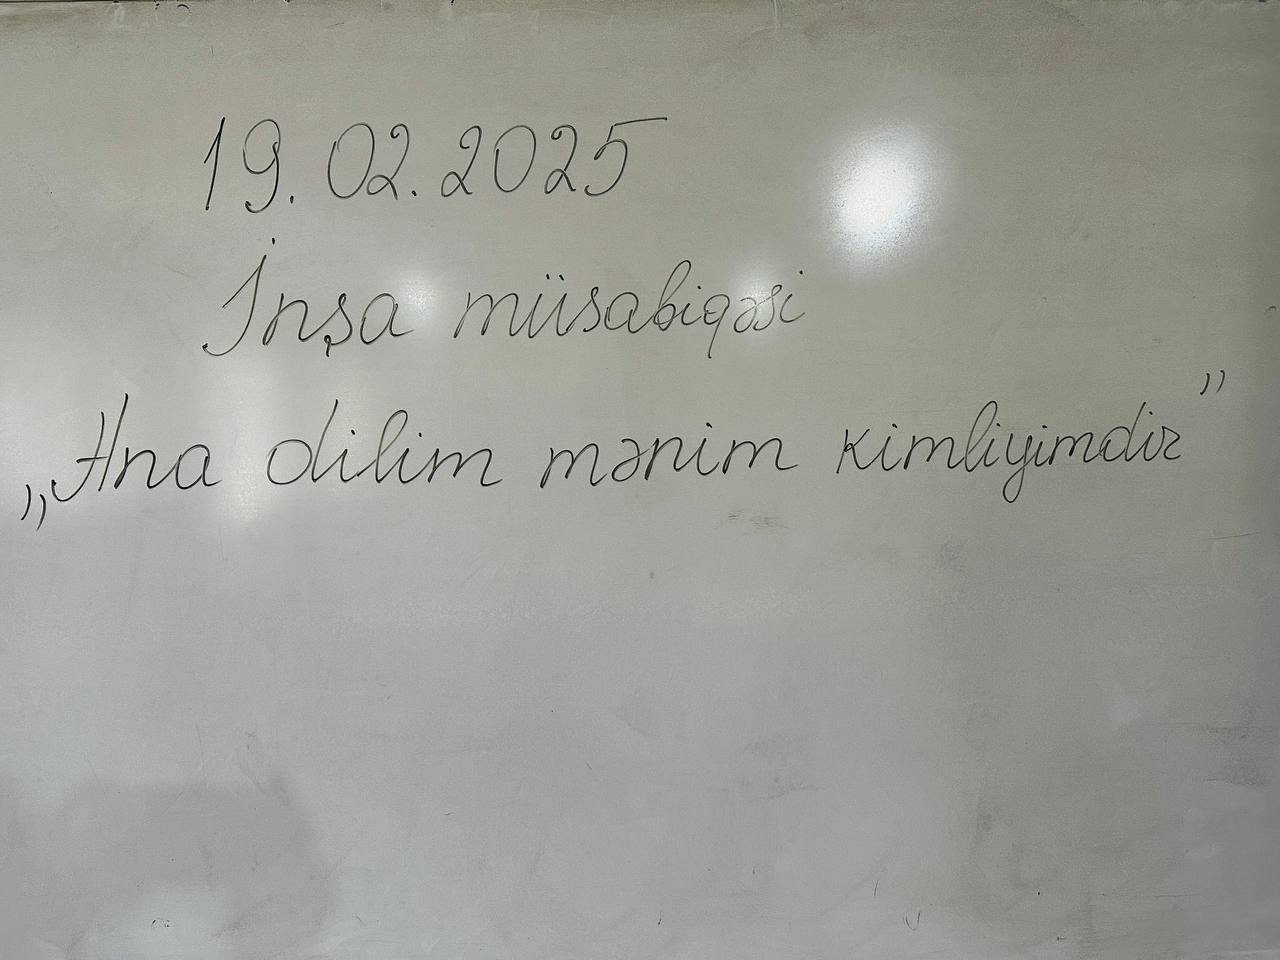 19.02.2025
İnşa müsabiqəsi
„Ana dilim mənim kimliyimdir”